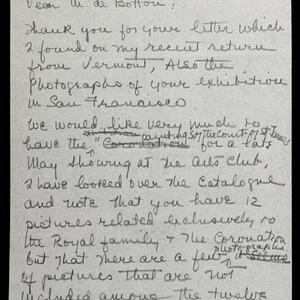 Dear M. de Botton:
Thank you for your letter which
I found on my recent return
from Vermont, Also the
Photographs of your exhibition
in San Francisco
We would like very much to
exhibition painting of the Court of St James
have the "Coronation" for a late
May showing at the Arts Club,
I have looked over the Catalogue
and note that you have 12
pictures related exclusively to
the Royal family & The Coronation
photographs
but that there are a few a
of pictures that are not
included among the twelve